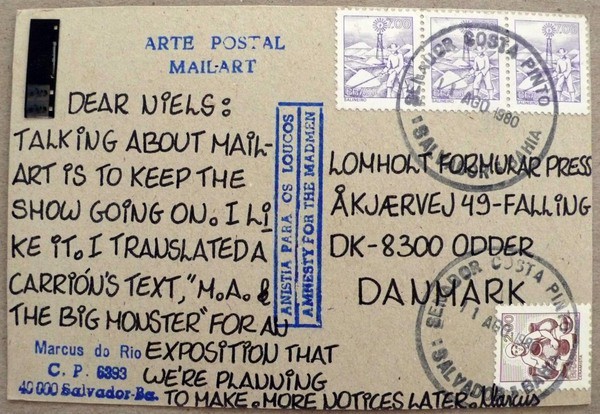 ARTE POSTAL
MAIL-ART
DEAR NIELS:
TALKING ABOUT MAIL-
ART IS TO KEEP THE
SHOW GOING ON. I LI
KE IT. I TRANSLATED A
CARRIÓN'S TEXT, "M.A. &
THE BIG MONSTER" FOR AN
EXPOSITION THAT
WE'RE PLANNING
TO MAKE. MORE NOTICES LATER. Marcus
Marcus do Rio
C. P. 6393
40 000 Salvador-Ba.
ANISTIA PARA OS LOUCOS
AMNESTY FOR THE MADMEN
SENADOR COSTA PINTO
AGO 1980
SALVADOR BAHIA
LOMHOLT FORMULAR PRESS
ÅKJÆRVEJ 49-FALLING
DK-8300 ODDER
DANMARK
SENADOR COSTA PINTO
11 AGO
SALVADOR BAHIA